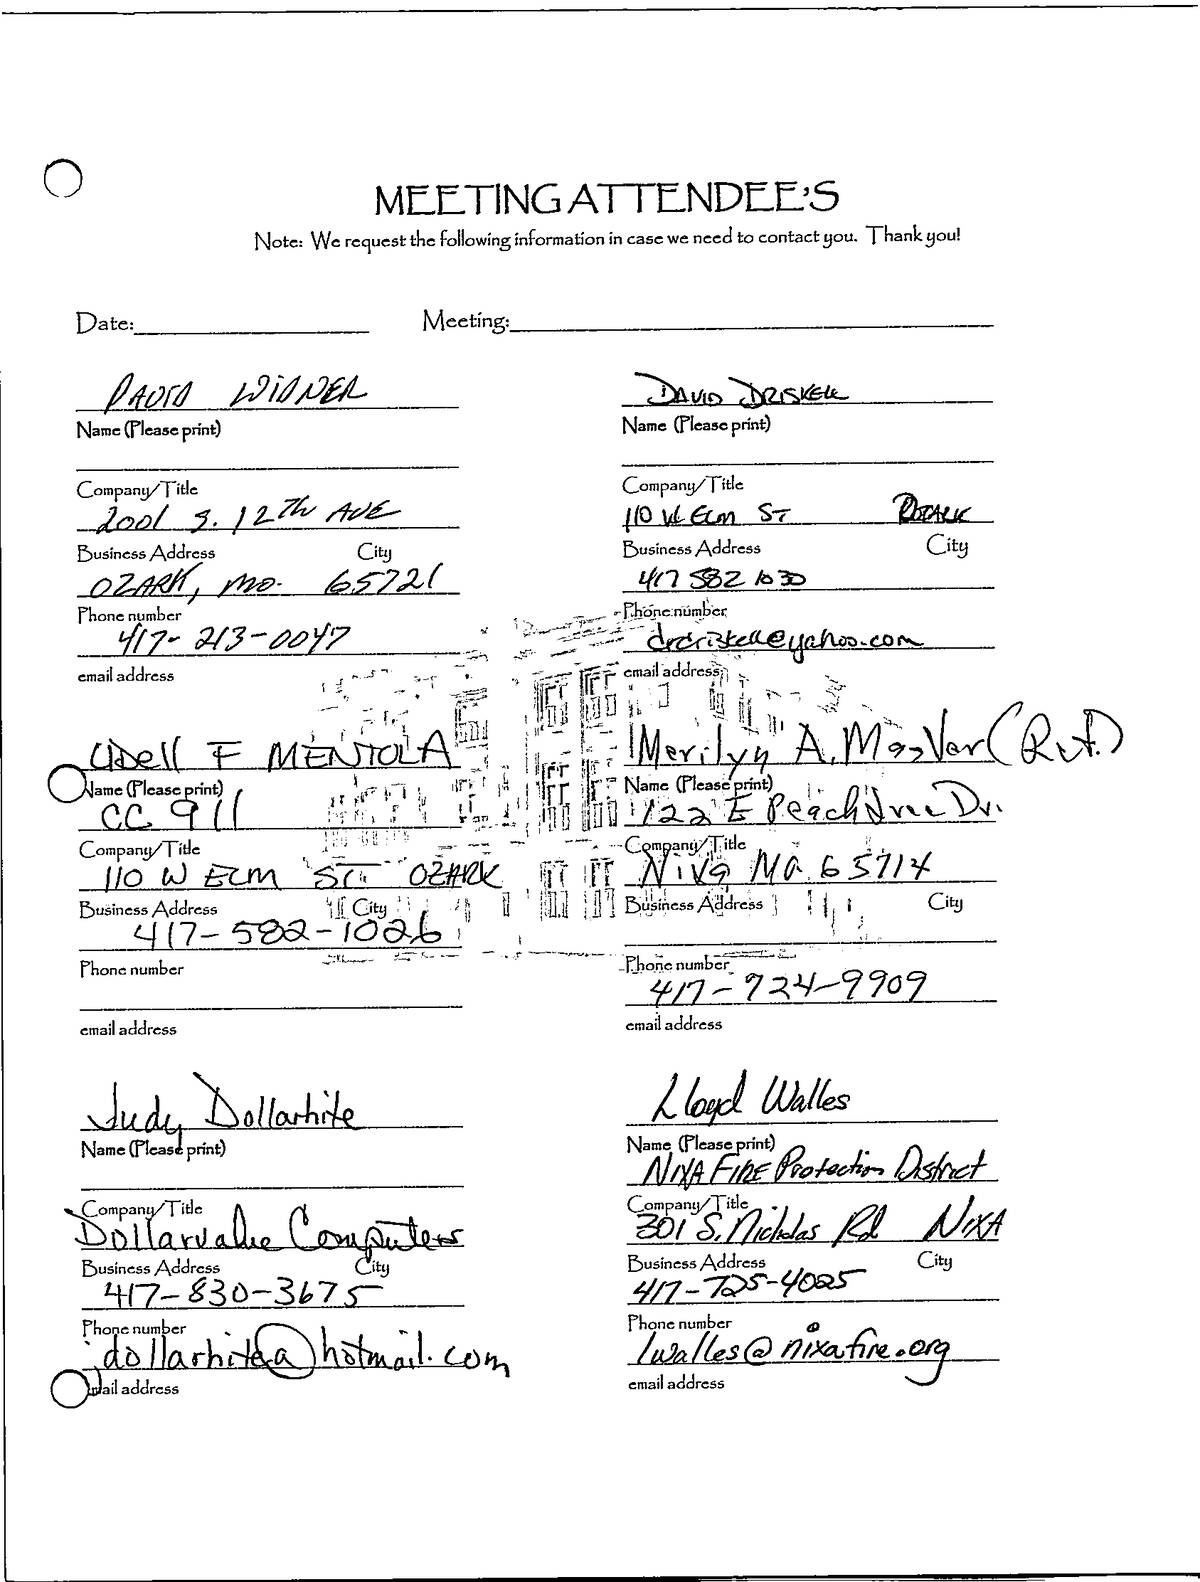 MEETING ATTENDEE'S
Note: We request the following information in case we need to contact you. Thank you!
Date: Meeting:
DAVID WIDNER
Name (Please print)
Company/Title
2001 S. 12TH AVE
Business Address City
OZARK, MO. 65721
Phone number
417-213-0047
email address
DAVID DRISKELL
Name (Please print)
Company/Title
110 W ELM ST OZARK
Business Address City
417 582 1030
Phone number
drdriskell@yahoo.com
email address
UDell F MENTOLA
Name (Please print)
CC 911
Company/Title
110 W ELM ST. OZARK
Business Address City
417-582-1026
Phone number
email address
Merilyn A. (Ret.)
Name (Please print)
122 E Peachtree Dr.
Company/Title
Nixa Mo 65714
Business Address City
Phone number
417-724-9909
email address
Judy Dollarhite
Name (Please print)
Company/Title
Dollarvalue Computers
Business Address City
417-830-3675
Phone number
jdollarhite@hotmail.com
email address
Lloyd Walles
Name (Please print)
NIXA FIRE Protection District
Company/Title
301 S. Nicholas Rd NIXA
Business Address City
417-725-4025
Phone number
lwalles@nixafire.org
email address